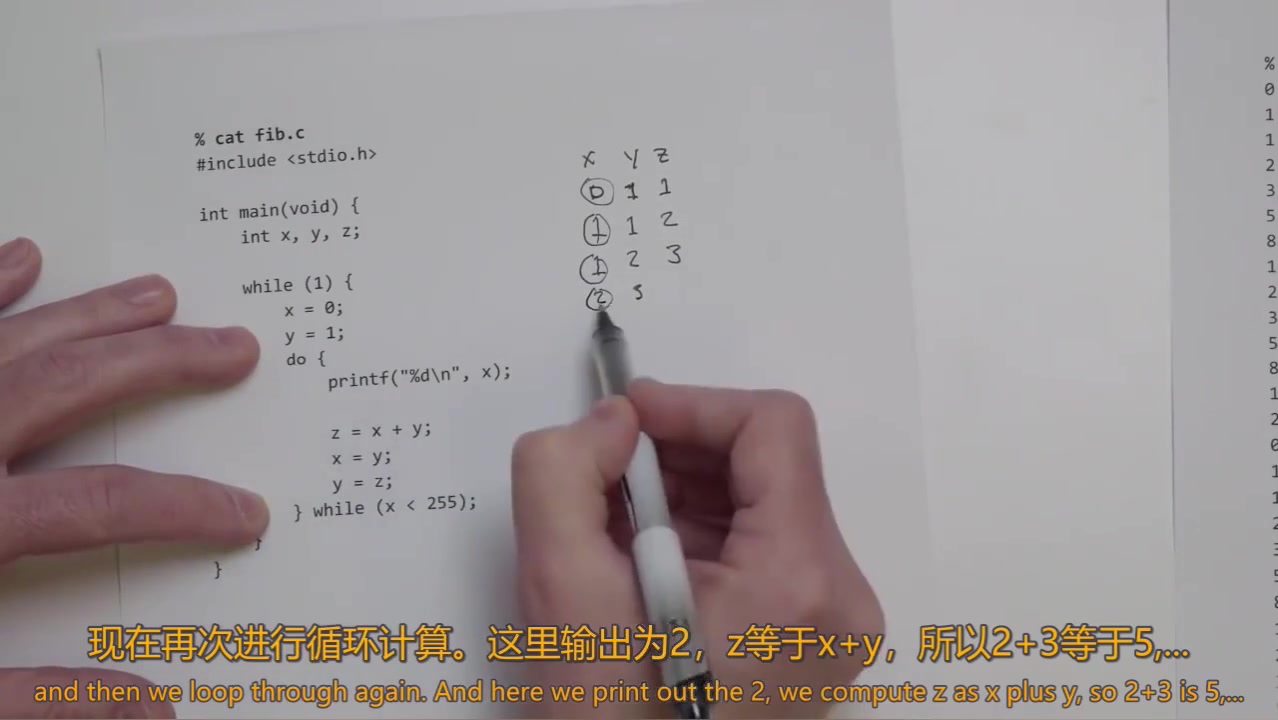 % cat fib.c
#include <stdio.h>
int main(void) {
int x, y, z;
while (1) {
x = 0;
y = 1;
do {
printf("%d\n", x);
z = x + y;
x = y;
y = z;
} while (x < 255);
}
}
x y z
0 1 1
1 1 2
1 2 3
2 3
%
0
1
1
2
3
5
8
1
2
3
5
8
1
2
0
1
1
2
3
5
现在再次进行循环计算。这里输出为2，z等于x+y，所以2+3等于5,...
and then we loop through again. And here we print out the 2, we compute z as x plus y, so 2+3 is 5,...